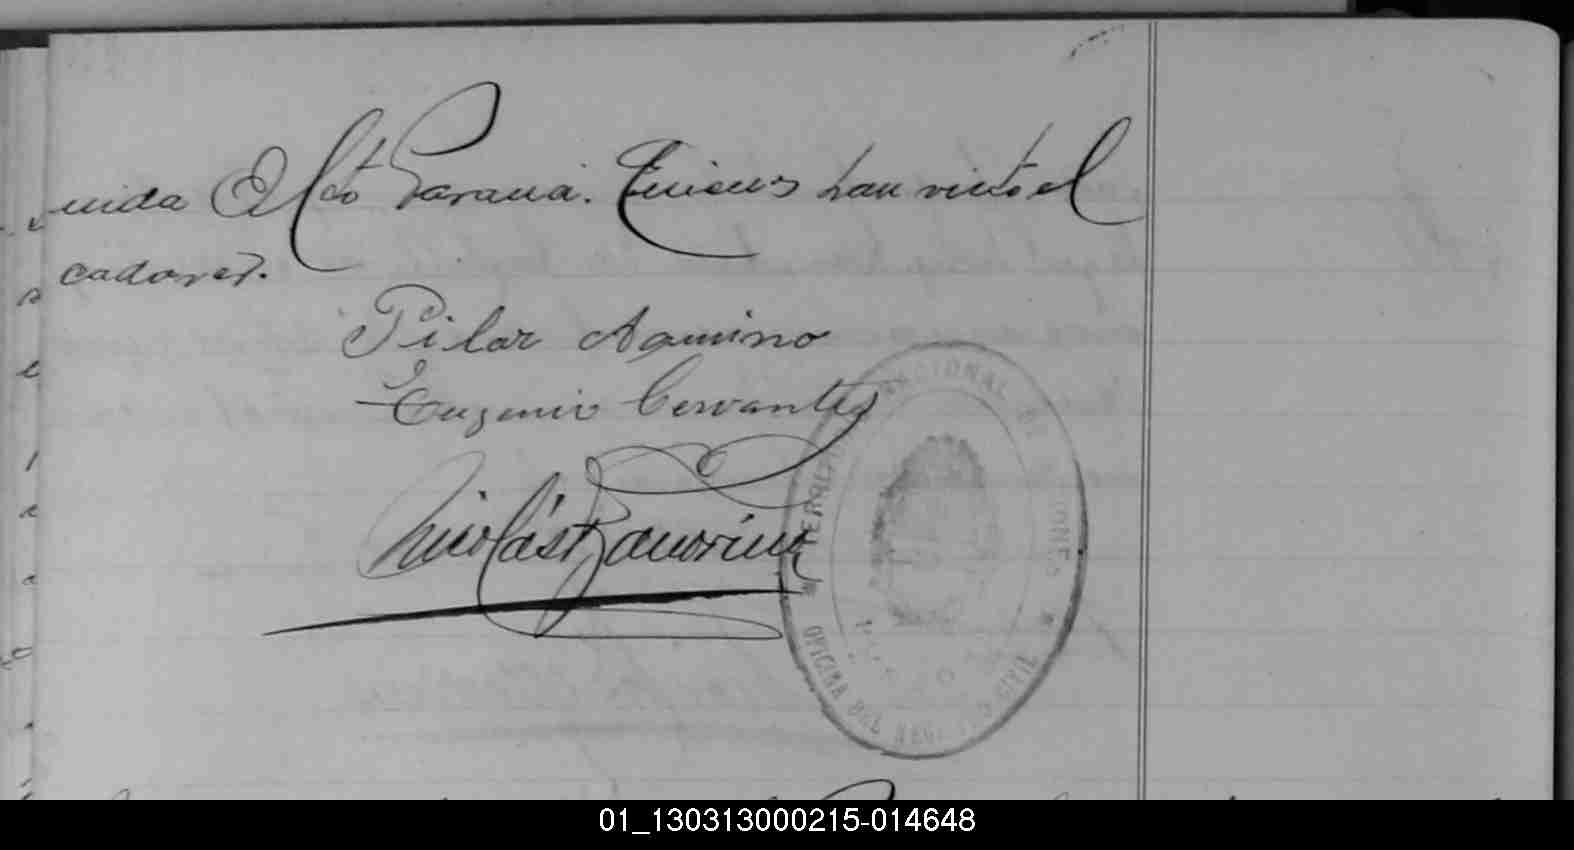 nida Alto Paraná. Quienes han visto el
cadaver.
Pilar Aquino
Eugenio Cervantes
Nicolás Zamorin
NACIONAL DE
OFICINA DEL REGISTRO CIVIL
01_130313000215-014648